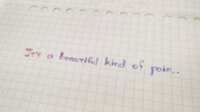 It's a beautiful kind of pain..